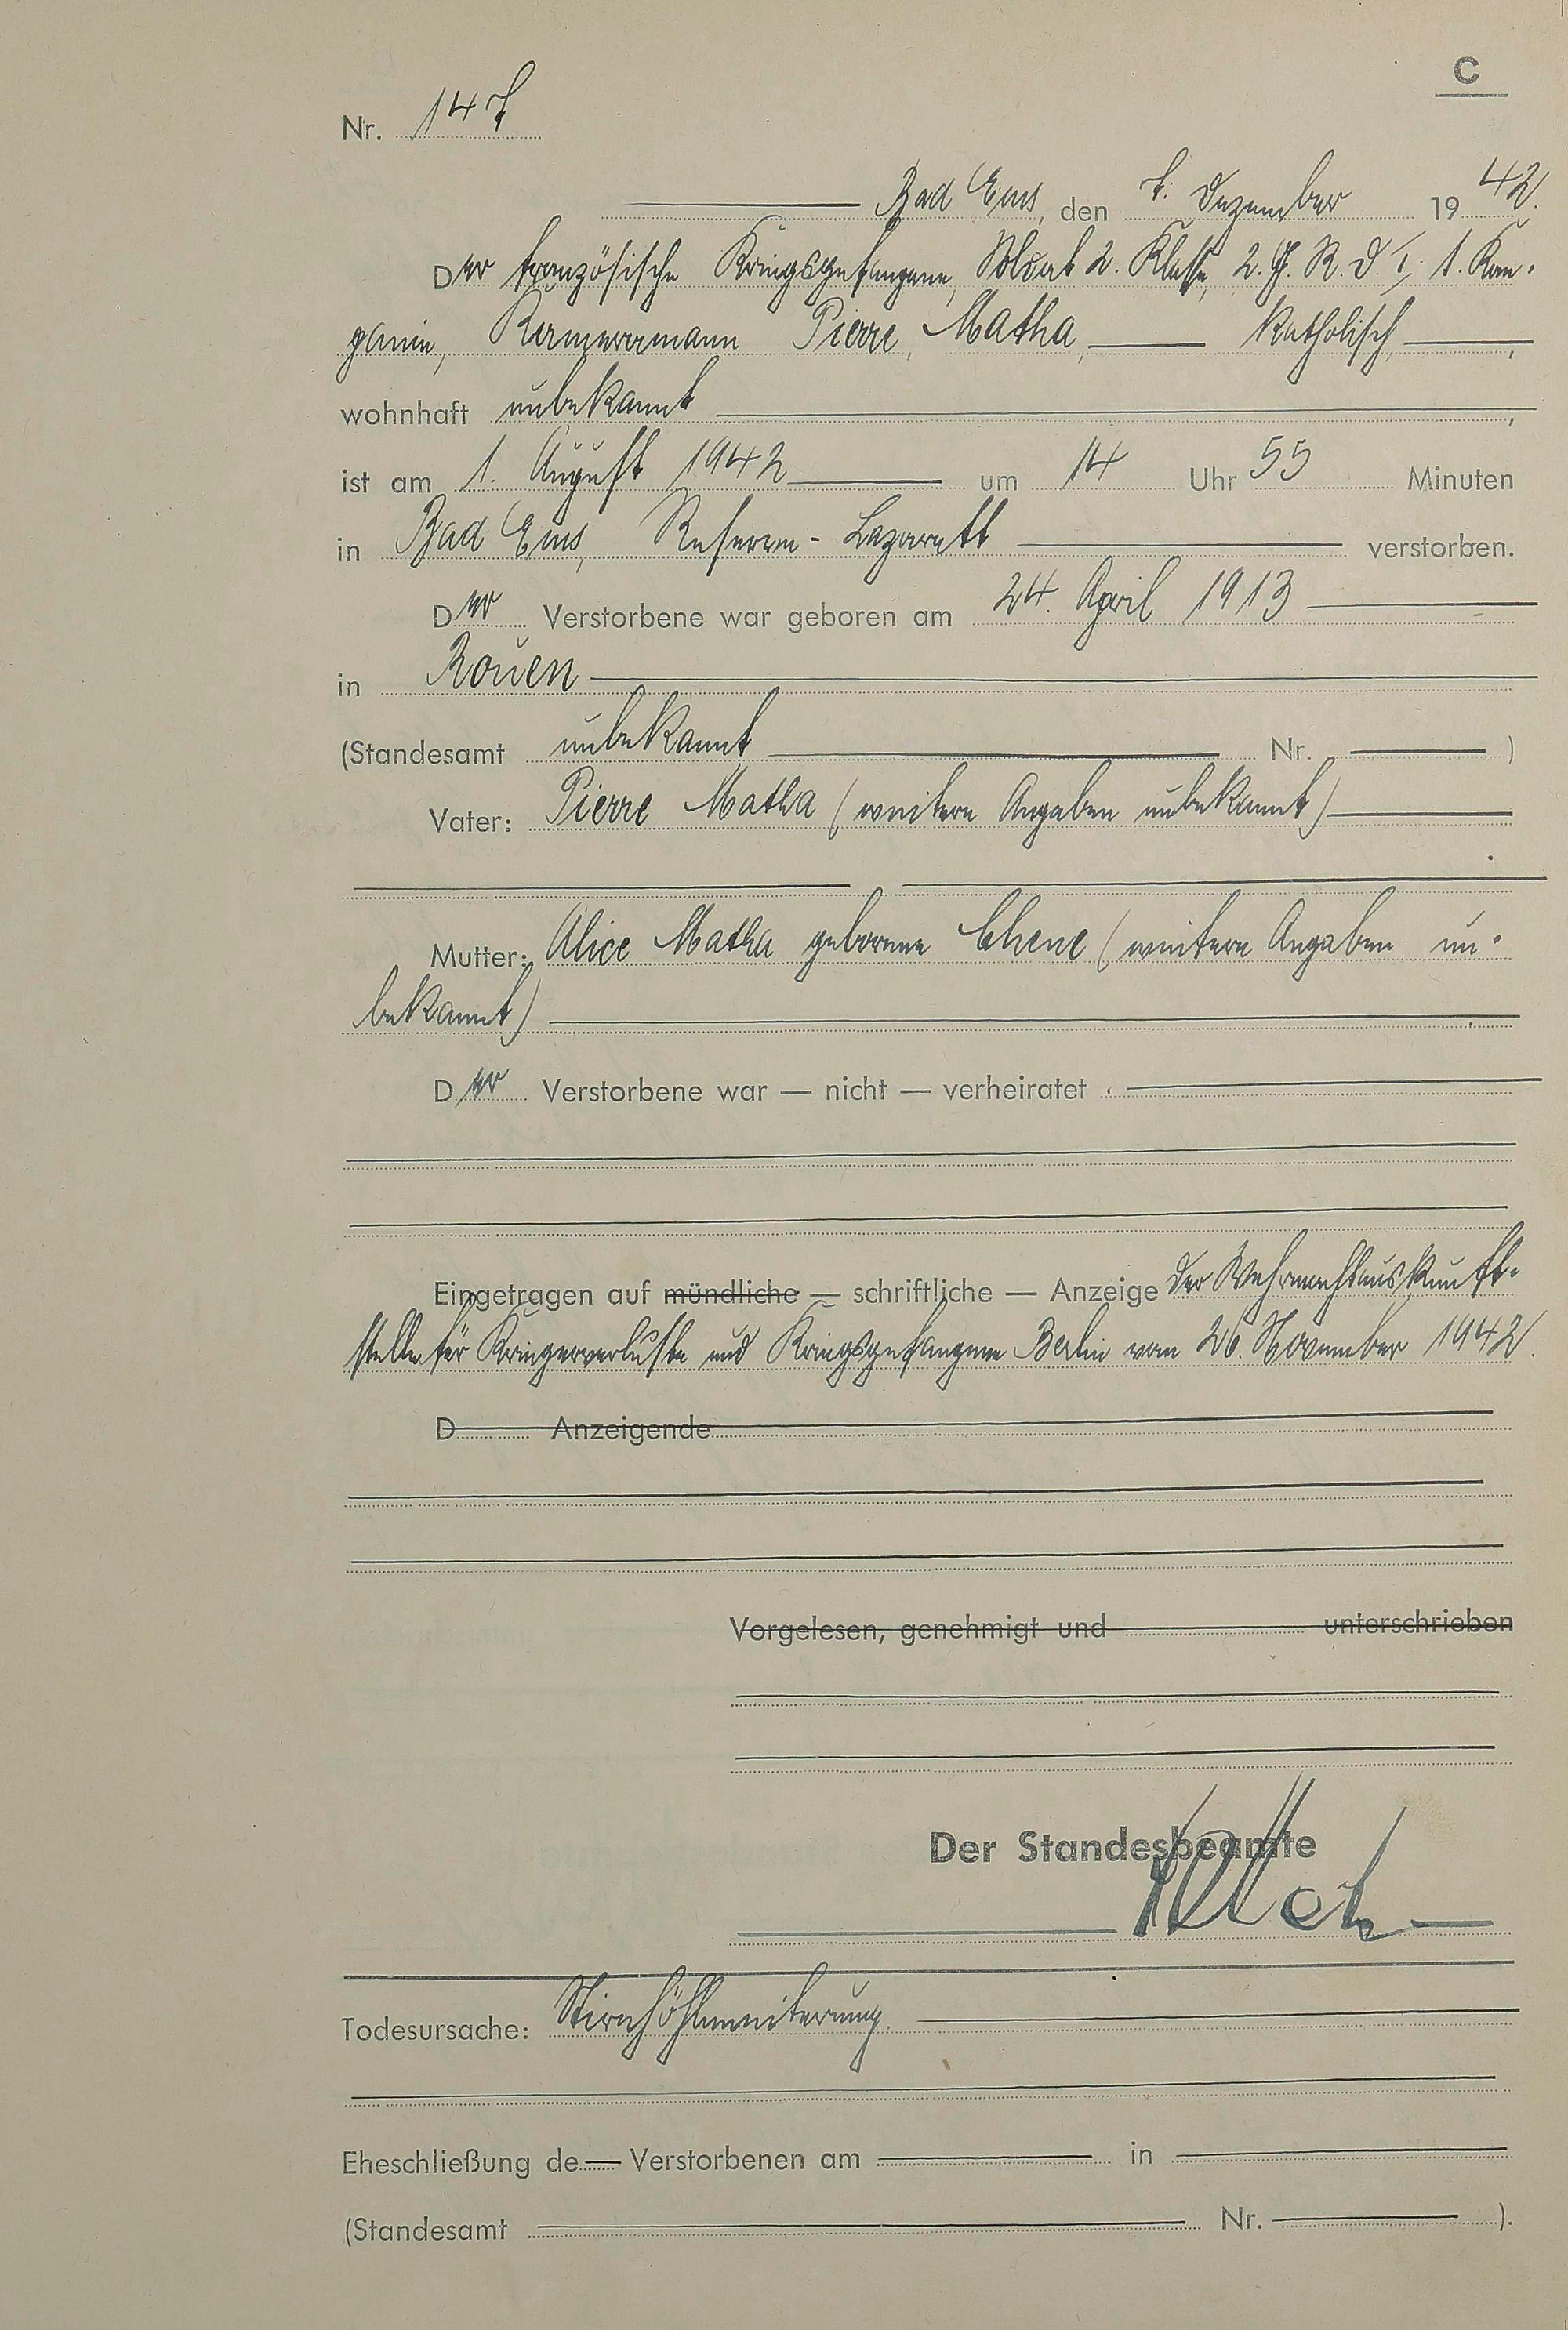 C
Nr. 147
Bad Ems, den 7. Dezember 1942.
Der französische Kriegsgefangene, Soldat 2. Klasse, 2. G. R. D. I. 1. Kom-
panie, Pierre Matha, katholisch,
wohnhaft unbekannt,
ist am 1. August 1942 um 14 Uhr 55 Minuten
in Bad Ems, Reserve-Lazarett verstorben.
Der Verstorbene war geboren am 24. April 1913
in Rouen
(Standesamt unbekannt Nr. )
Vater: Pierre Matha (weitere Angaben unbekannt)
Mutter: Alice Matha geborene Chene (weitere Angaben un-
bekannt)
Der Verstorbene war — nicht — verheiratet.
Eingetragen auf mündliche — schriftliche — Anzeige der Wehrmachtauskunft-
stelle für Kriegerverluste und Kriegsgefangene Berlin vom 26. November 1942.
D Anzeigende
Vorgelesen, genehmigt und unterschrieben
Der Standesbeamte
Todesursache: Stirnhöhleneiterung.
Eheschließung de Verstorbenen am in
(Standesamt Nr. ).